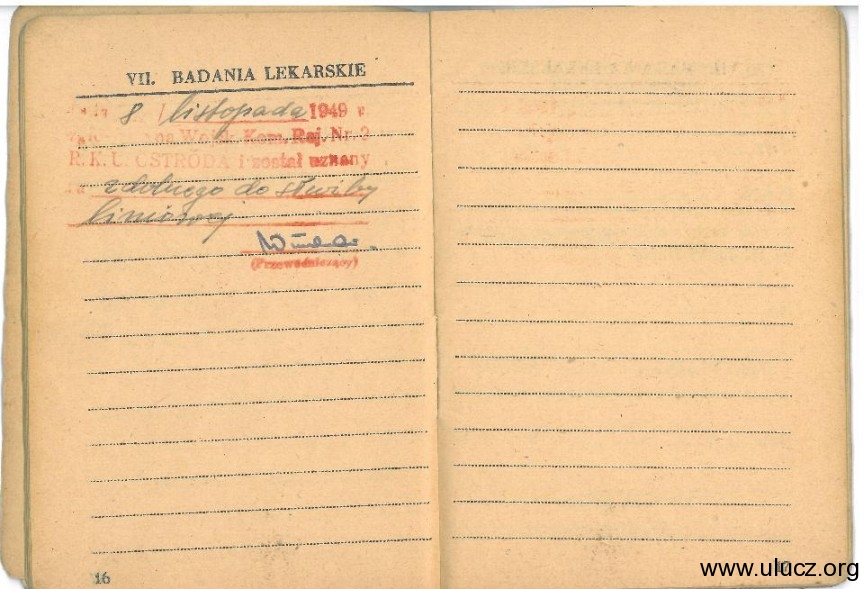 VII. BADANIA LEKARSKIE
8 listopada 1949 r
Wojsk. Kom. Rej. Nr.
R. K. U. OSTRÓDA i został uznany
za zdolnego do służby
liniowej
(Przewodniczący)
16
www.ulucz.org